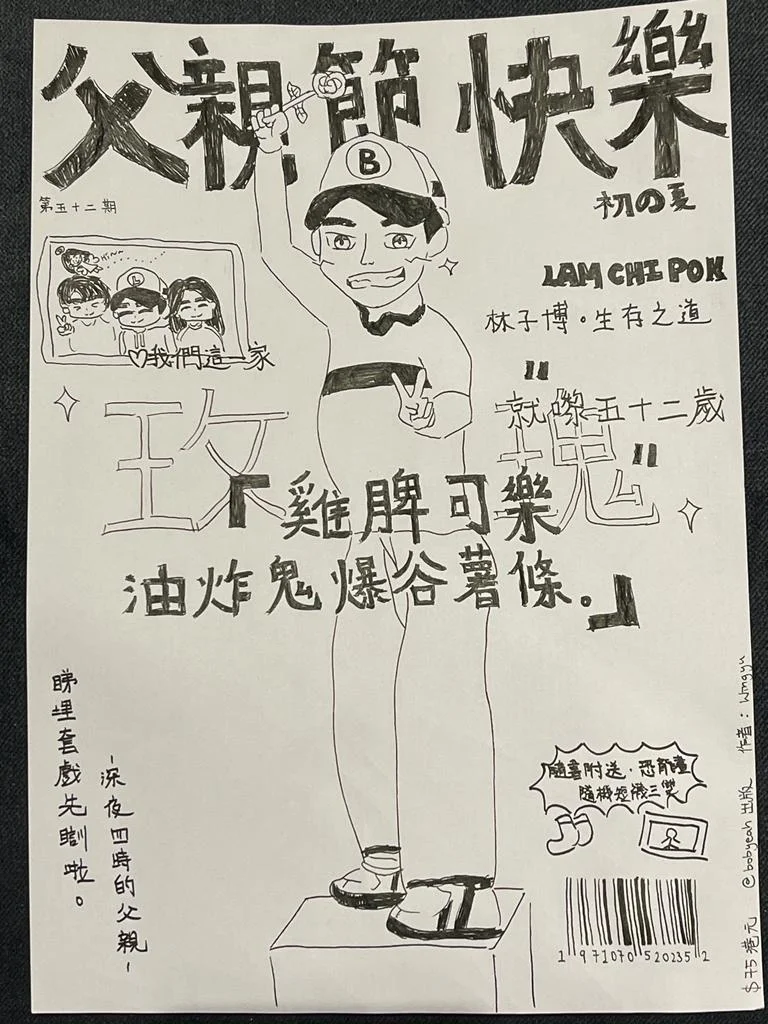 父親節快樂
B
第五十二期
初の夏
LAM CHI POK
林子博。生存之道
L
♡我們這一家
"就嚟五十二歲"
玫瑰
「雞脾可樂
油炸鬼爆谷薯條。」
睇埋套戲先瞓啦。
-深夜四時的父親-
隨書附送．
隨機短襪三雙
1 971070 520235 2
$75港元 @bobyeah 出版 作者：Wingyu